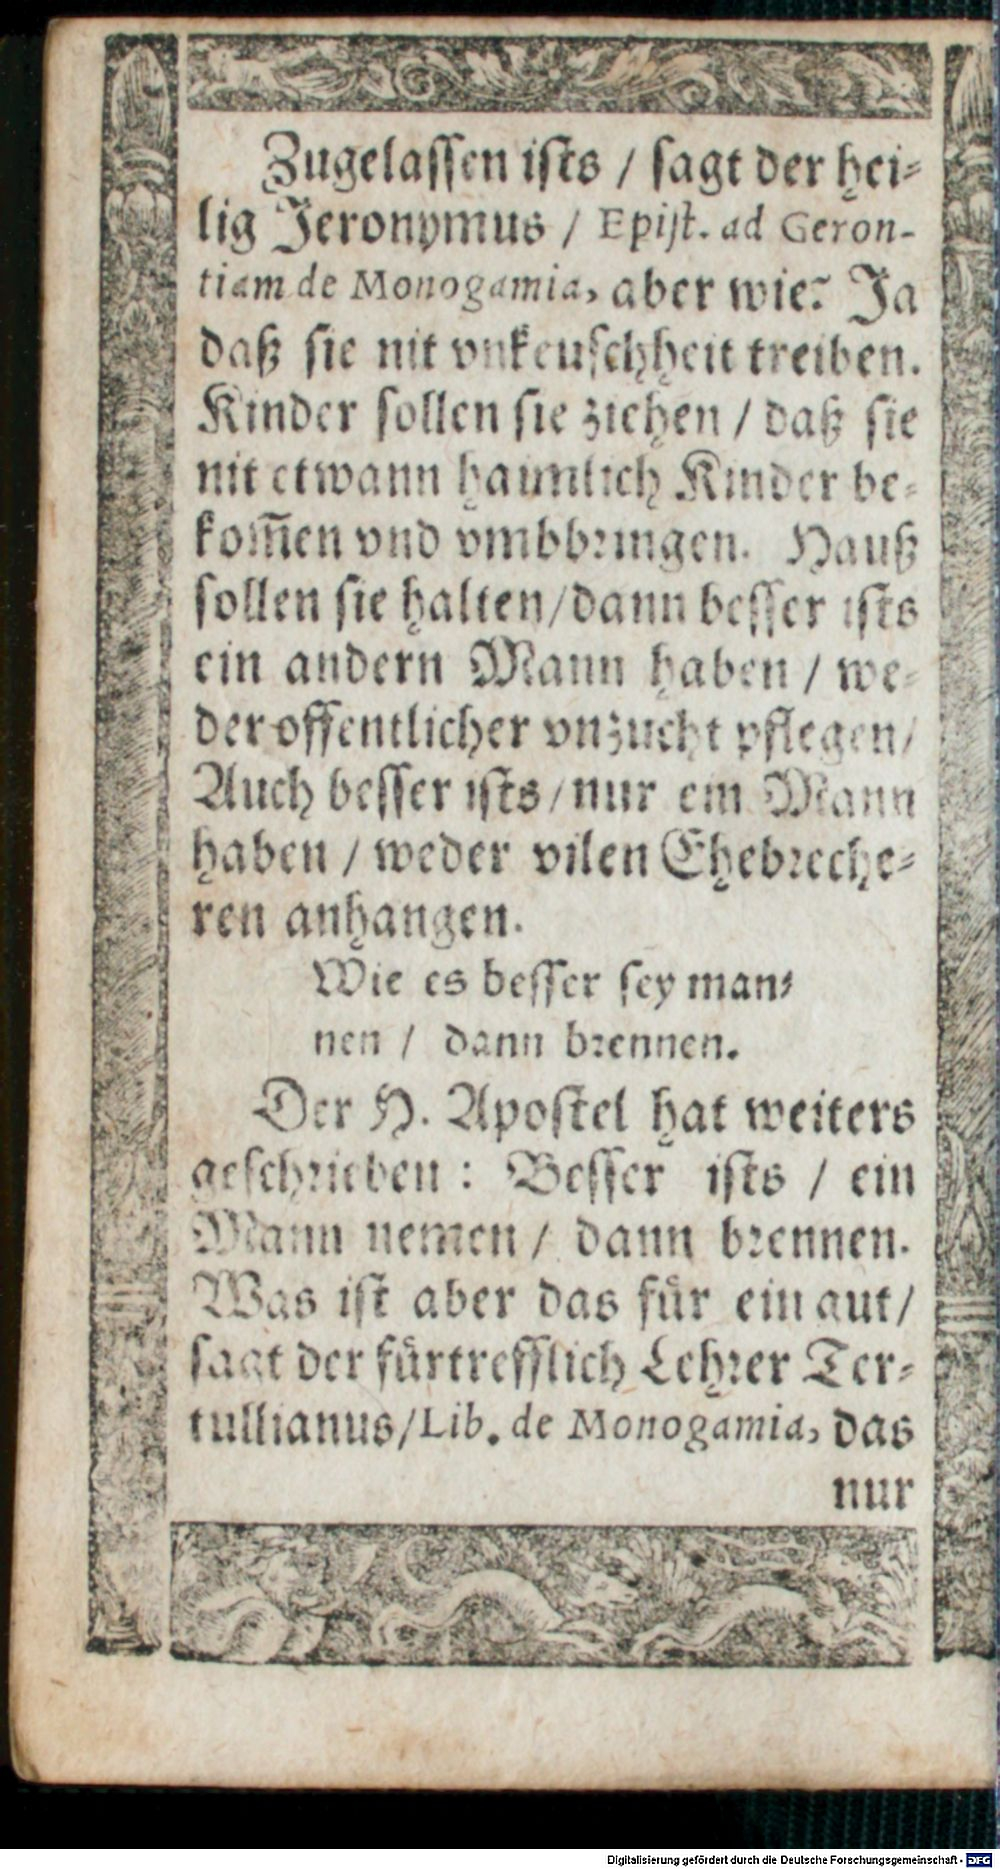 Zugelassen ists / sagt der hei⸗
lig Jeronymus / Epist. ad Geron-
tiam de Monogamia, aber wie? Ja
daß sie nit vnkeuschheit treiben.
Kinder sollen sie ziehen / daß sie
nit etwann haimlich Kinder be⸗
kom̄en vnd vmbbringen. Hauß
sollen sie halten / dann besser ists
ein andern Mann haben / we⸗
der offentlicher vnzucht pflegen /
Auch besser ists / nur ein Mann
haben / weder vilen Ehebreche⸗
ren anhangen.
Wie es besser sey man⸗
nen / dann brennen.
Der H. Apostel hat weiters
geschrieben : Besser ists / ein
Mann nemen / dann brennen.
Was ist aber das für ein gut /
sagt der fürtrefflich Lehrer Ter⸗
tullianus / Lib. de Monogamia, das
nur
Digitalisierung gefördert durch die Deutsche Forschungsgemeinschaft - DFG